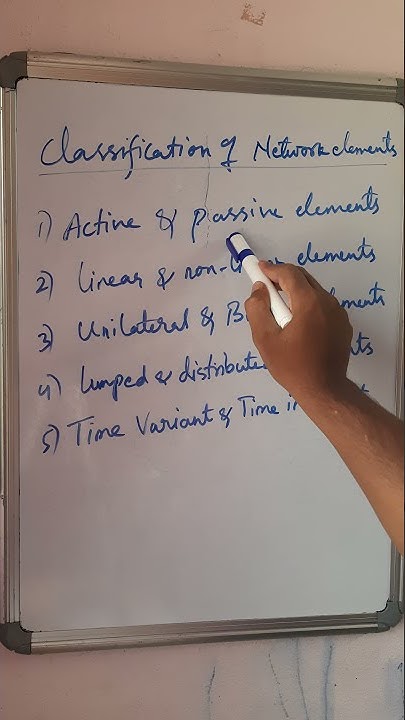 Classification of Network elements
1) Active & passive elements
2) linear & non- elements
3) Unilateral & B ements
4) lumped & distribute ts
5) Time Variant & Time in t